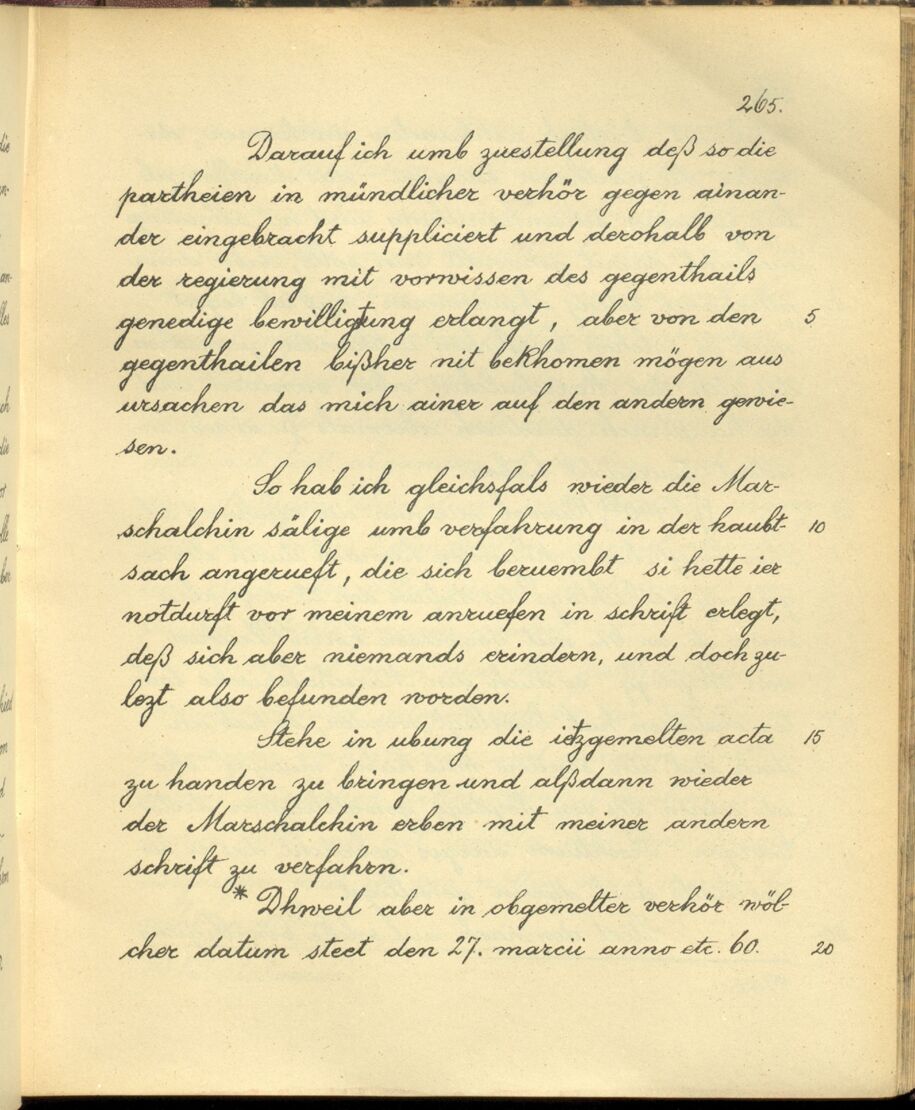 265.
Darauf ich umb zuestellung deß so die
partheien in mündlicher verhör gegen ainan-
der eingebracht suppliciert und derohalb von
der regierung mit vorwissen des gegenthails
genedige bewilligtung erlangt, aber von den 5
gegenthailen bißher nit bekhomen mögen aus
ursachen das mich ainer auf den andern gewie-
sen.
So hab ich gleichsfals wieder die Mar-
schalchin sälige umb verfahrung in der haubt- 10
sach angerueft, die sich beruembt si hette ier
notdurft vor meinem anruefen in schrift erlegt,
deß sich aber niemands erindern, und doch zu-
lezt also befunden worden.
Stehe in ubung die ietzgemelten acta 15
zu handen zu bringen und alßdann wieder
der Marschalchin erben mit meiner andern
schrift zu verfahrn.
* Dhweil aber in obgemelter verhör wöl-
cher datum steet den 27. marcii anno etc. 60. 20